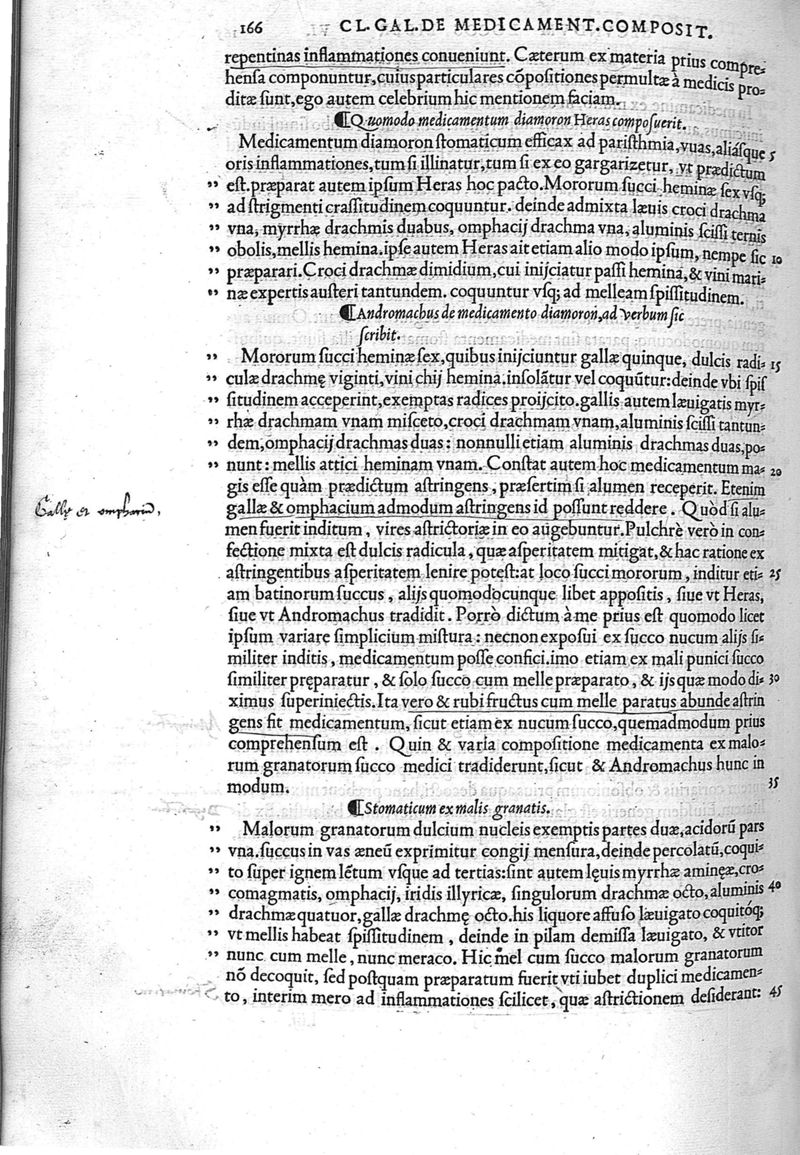 166 CL. GAL. DE MEDICAMENT. COMPOSIT.
repentinas inflammationes conueniunt. Cæterum ex materia prius compre-
hensa componuntur, cuius particulares cõpositiones permultæ à medicis pro-
ditæ sunt, ego autem celebrium hic mentionem faciam.
¶Quomodo medicamentum diamoron Heras composuerit.
Medicamentum diamoron stomaticum efficax ad paristhmia, vuas, aliásque 5
oris inflammationes, tum si illinatur, tum si ex eo gargarizetur, vt prædictum
” est. præparat autem ipsum Heras hoc pacto. Mororum succi heminæ sex vsq;
” ad strigmenti crassitudinem coquuntur. deinde admixta læuis croci drachma
” vna, myrrhæ drachmis duabus, omphacij drachma vna, aluminis scissi ternis
” obolis, mellis hemina. ipse autem Heras ait etiam alio modo ipsum, nempe sic 10
” præparari. Croci drachmæ dimidium, cui inijciatur passi hemina, & vini mari-
” næ expertis austeri tantundem. coquuntur vsq; ad melleam spissitudinem.
¶Andromachus de medicamento diamorõn, ad verbum sic
scribit.
” Mororum succi heminæ sex, quibus inijciuntur gallæ quinque, dulcis radi- 15
” culæ drachmę viginti, vini chij hemina. insolãtur vel coquũtur: deinde vbi spis
” situdinem acceperint, exemptas radices proijcito. gallis autem læuigatis myr-
” rhæ drachmam vnam misceto, croci drachmam vnam, aluminis scissi tantun-
” dem, omphacij drachmas duas: nonnulli etiam aluminis drachmas duas, po-
” nunt: mellis attici heminam vnam. Constat autem hoc medicamentum ma- 20
gis esse quàm prædictum astringens, præsertim si alumen receperit. Etenim
gallæ & omphacium admodum astringens id possunt reddere. Quòd si alu-
Gallę et omphaciũ,
men fuerit inditum, vires astrictoriæ in eo augebuntur. Pulchrè verò in con-
fectione mixta est dulcis radicula, quæ asperitatem mitigat, & hac ratione ex
astringentibus asperitatem lenire potest: at loco succi mororum, inditur eti- 25
am batinorum succus, alijs quomodocunque libet appositis, siue vt Heras,
siue vt Andromachus tradidit. Porrò dictum à me prius est quomodo licet
ipsum variare simplicium mistura: necnon exposui ex succo nucum alijs si-
militer inditis, medicamentum posse confici. imo etiam ex mali punici succo
similiter pręparatur, & solo succo cum melle præparato, & ijs quæ modo di- 30
ximus superiniectis. Ita vero & rubi fructus cum melle paratus abunde astrin
gens fit medicamentum, sicut etiam ex nucum succo, quemadmodum prius
comprehensum est. Quin & varia compositione medicamenta ex malo-
rum granatorum succo medici tradiderunt, sicut & Andromachus hunc in
modum. 35
¶Stomaticum ex malis granatis.
” Malorum granatorum dulcium nucleis exemptis partes duæ, acidorũ pars
” vna. succus in vas æneũ exprimitur congij mensura, deinde percolatũ, coqui-
” to super ignem lẽtum vsque ad tertias: sint autem lęuis myrrhæ aminęæ, cro-
” comagmatis, omphacij, iridis illyricæ, singulorum drachmæ octo, aluminis 40
” drachmæ quatuor, gallæ drachmę octo. his liquore affuso læuigato coquitóq;
” vt mellis habeat spissitudinem, deinde in pilam demissa læuigato, & vtitor
” nunc cum melle, nunc meraco. Hic mel cum succo malorum granatorum
nõ decoquit, sed postquam præparatum fuerit vti iubet duplici medicamen-
to, interim mero ad inflammationes scilicet, quæ astrictionem desiderant: 45